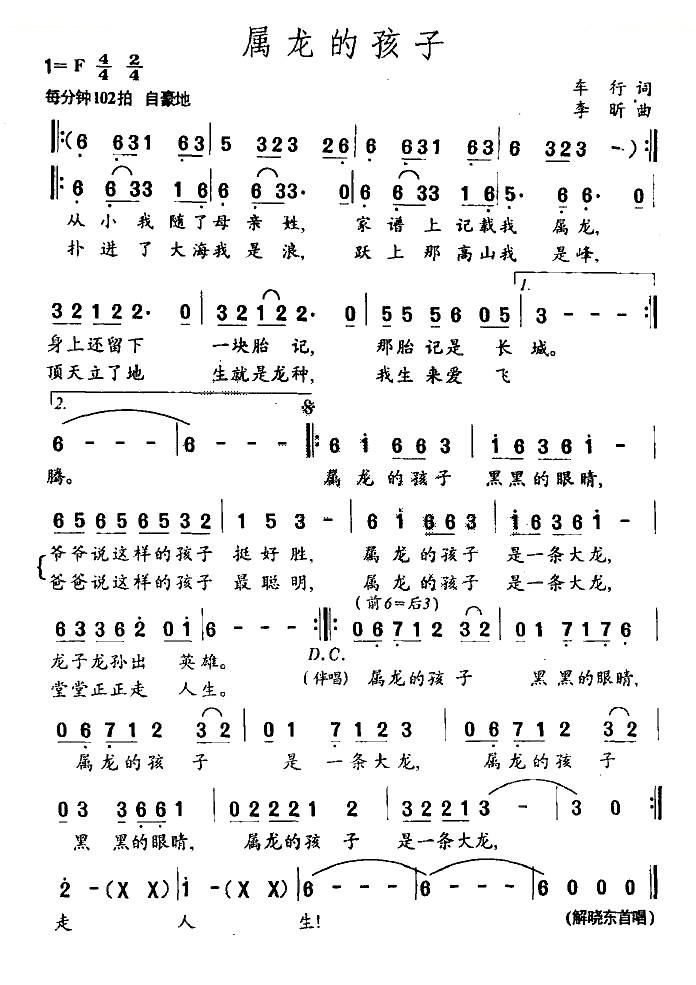 属龙的孩子
1=F 4/4 2/4
每分钟102拍 自豪地
车 行 词
李 昕 曲
‖:(6 631 63 | 5 323 26 | 6 631 63 | 6 323 -):‖
‖: 6 633 16 | 6 633. 0 | 6 633 16 | 5. 6 6. 0 |
从小我随了母亲姓, 家谱上记载我 属龙,
扑进了大海我是浪, 跃上那高山我 是峰,
32122. 0 | 32122. 0 | 55 56 05 | 1. 3 - - - :‖
身上还留下 一块胎记, 那胎记是 长城。
顶天立了地 生就是龙种, 我生来爱 飞
2. 6 - - - | 6 - - ‖: 6 i 66 3 | i636 i - |
腾。 属龙的孩子 黑黑的眼睛,
65656532 | 1 5 3 - | 6 i 66 3 | i636 i - |
爷爷说这样的孩子 挺好胜, 属龙的孩子 是一条大龙,
爸爸说这样的孩子 最聪明, 属龙的孩子 是一条大龙,
(前6=后3)
63362 0i | 6 - - - :‖: 06712 32 | 01 7176 |
龙子龙孙出 英雄。 D.C. (伴唱) 属龙的孩子 黑黑的眼睛,
堂堂正正走 人生。
06712 32 | 01 7123 | 06712 32 |
属龙的孩子 是一条大龙, 属龙的孩子
03 3661 | 02221 2 | 32213 - | 3 0 :‖
黑黑的眼睛, 属龙的孩子 是一条大龙,
2 - (X X) | i - (X X) | 6 - - - | 6 - - - | 6 0 0 0 ‖
走 人 生! (解晓东首唱)